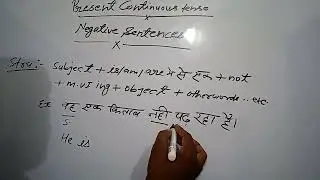 Present Continuous tense
x
Negative Sentences
x
Stru:- Subject + is/am/are में से एक + not
+ m.v₁ ing + object + otherwords .. etc.
Ex वह एक किताब नहीं पढ़ रहा है।
S
He is